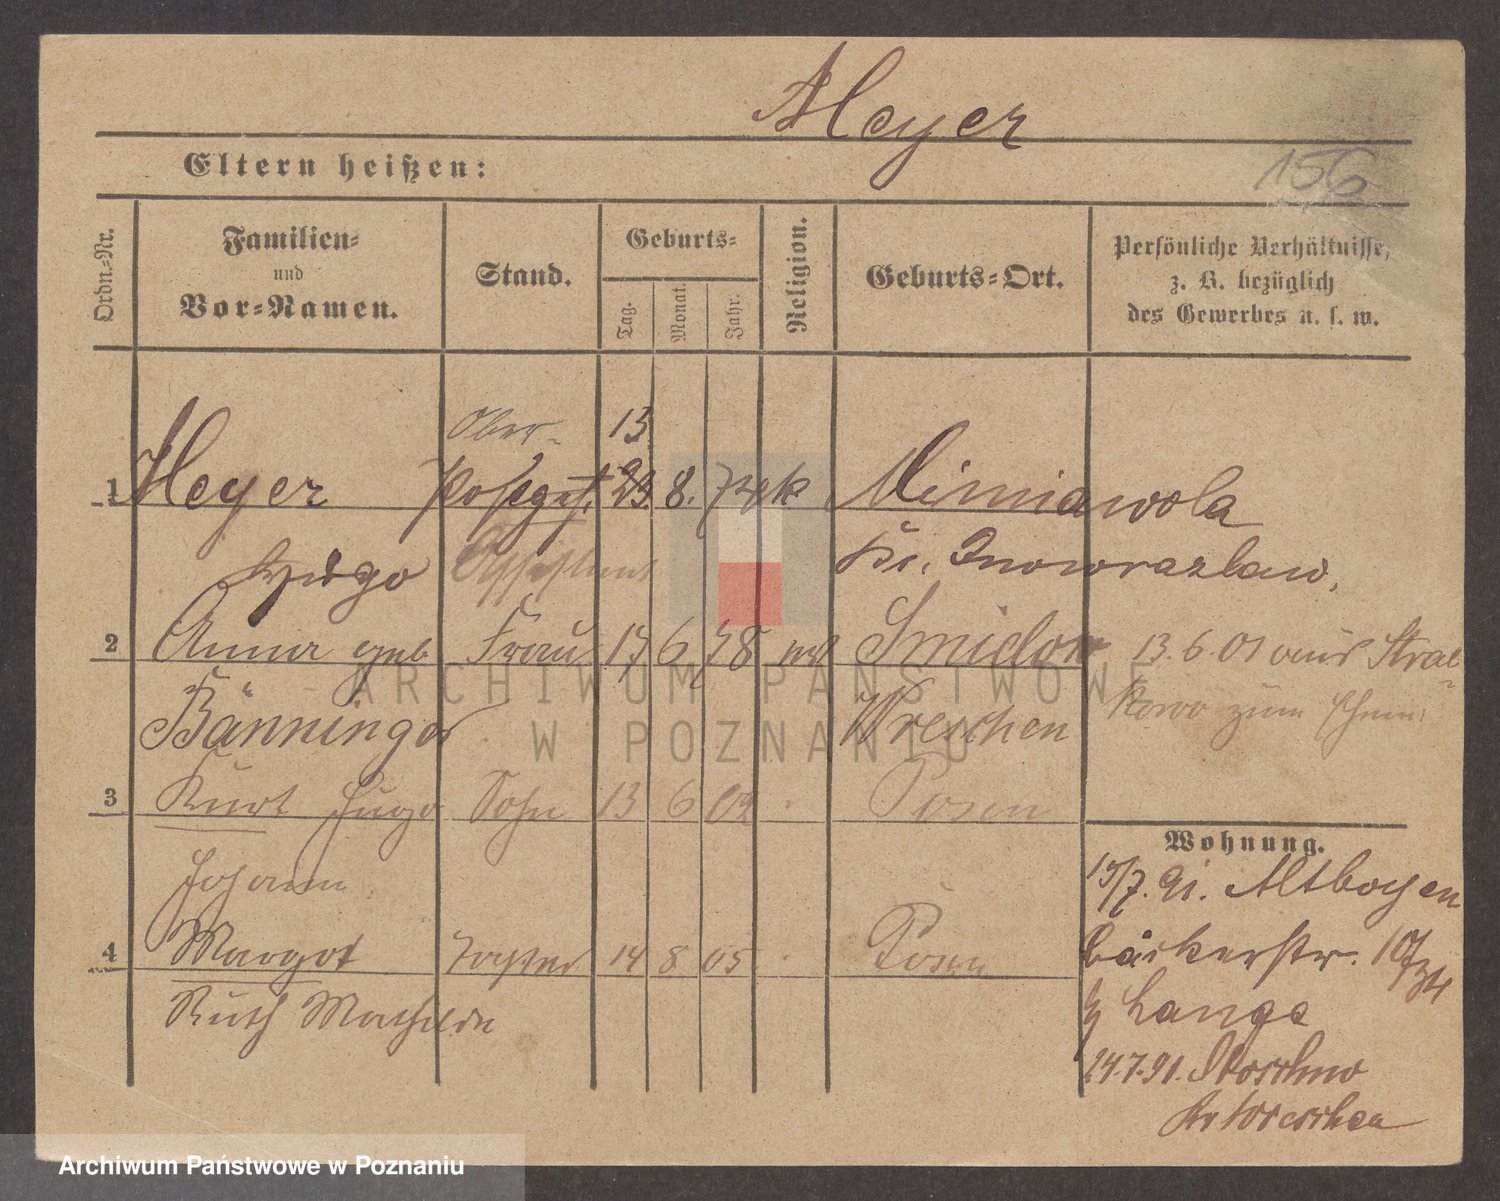 Meyer
Eltern heißen:
156
Ordn.-Nr.
Familien-
und
Vor-Namen.
Stand.
Geburts-
Tag.
Monat.
Jahr.
Religion.
Geburts-Ort.
Persönliche Verhältnisse,
z. B. bezüglich
des Gewerbes u. s. w.
Ober- 13
1 Meyer Postgeh. 23. 8. k Minniawola
Hugo Assistent Kr. Inowrazlaw.
2 Anna geb Frau 17 6 78 Smidow 13.6.01 aus Stral
Bänninger Wreschen kowo zum
3 Kurt Hugo Sohn 13 6 02 Posen
Johann
4 Margot Tochter 14 8 05 Posen
Ruth Mathilde
Wohnung.
15/7. 91. Altbogen
bäckerstr. 10/34
b Lange
24.7.91.
Kr Wreschen
ARCHIWUM PAŃSTWOWE
W POZNANIU
Archiwum Państwowe w Poznaniu